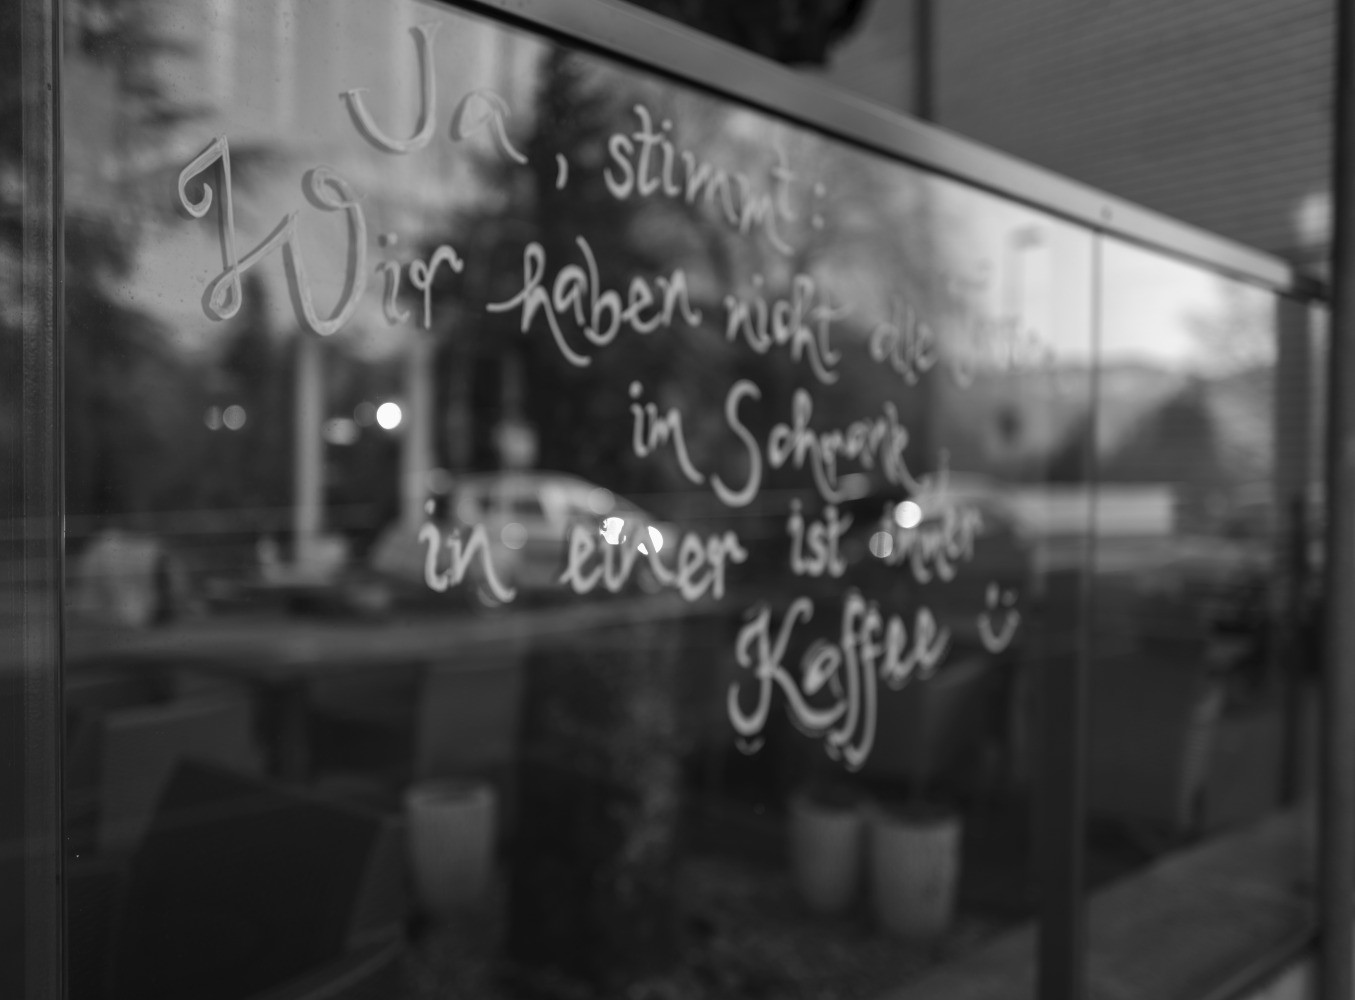 Ja, stimmt:
Wir haben nicht alle
im Schrank,
in einer ist immer
Kaffee